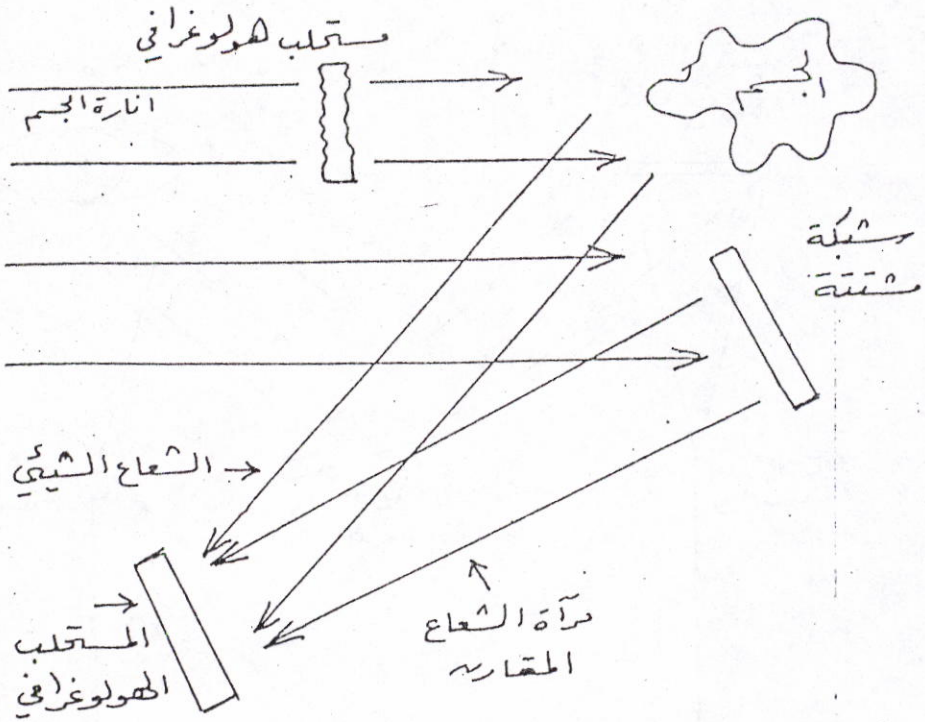 مستحلب هولوغرافي
انارة الجسم
الجسم
شبكة
مشتتة
الشعاع الشيئي
مرآة الشعاع
المقارن
المستحلب
الهولوغرافي